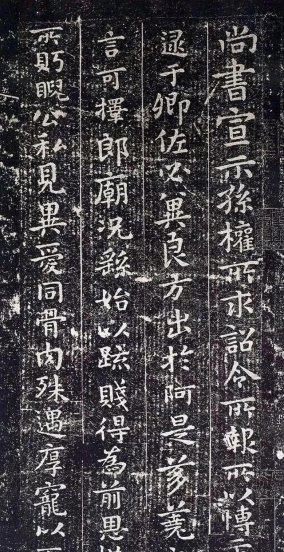 尚書宣示孫權所求詔令所報所以博
逮于卿佐必冀良方出於阿是芻蕘
言可擇郎廟況繇始以疏賤得為前恩
所眄睨公私見異愛同骨肉殊遇厚寵以